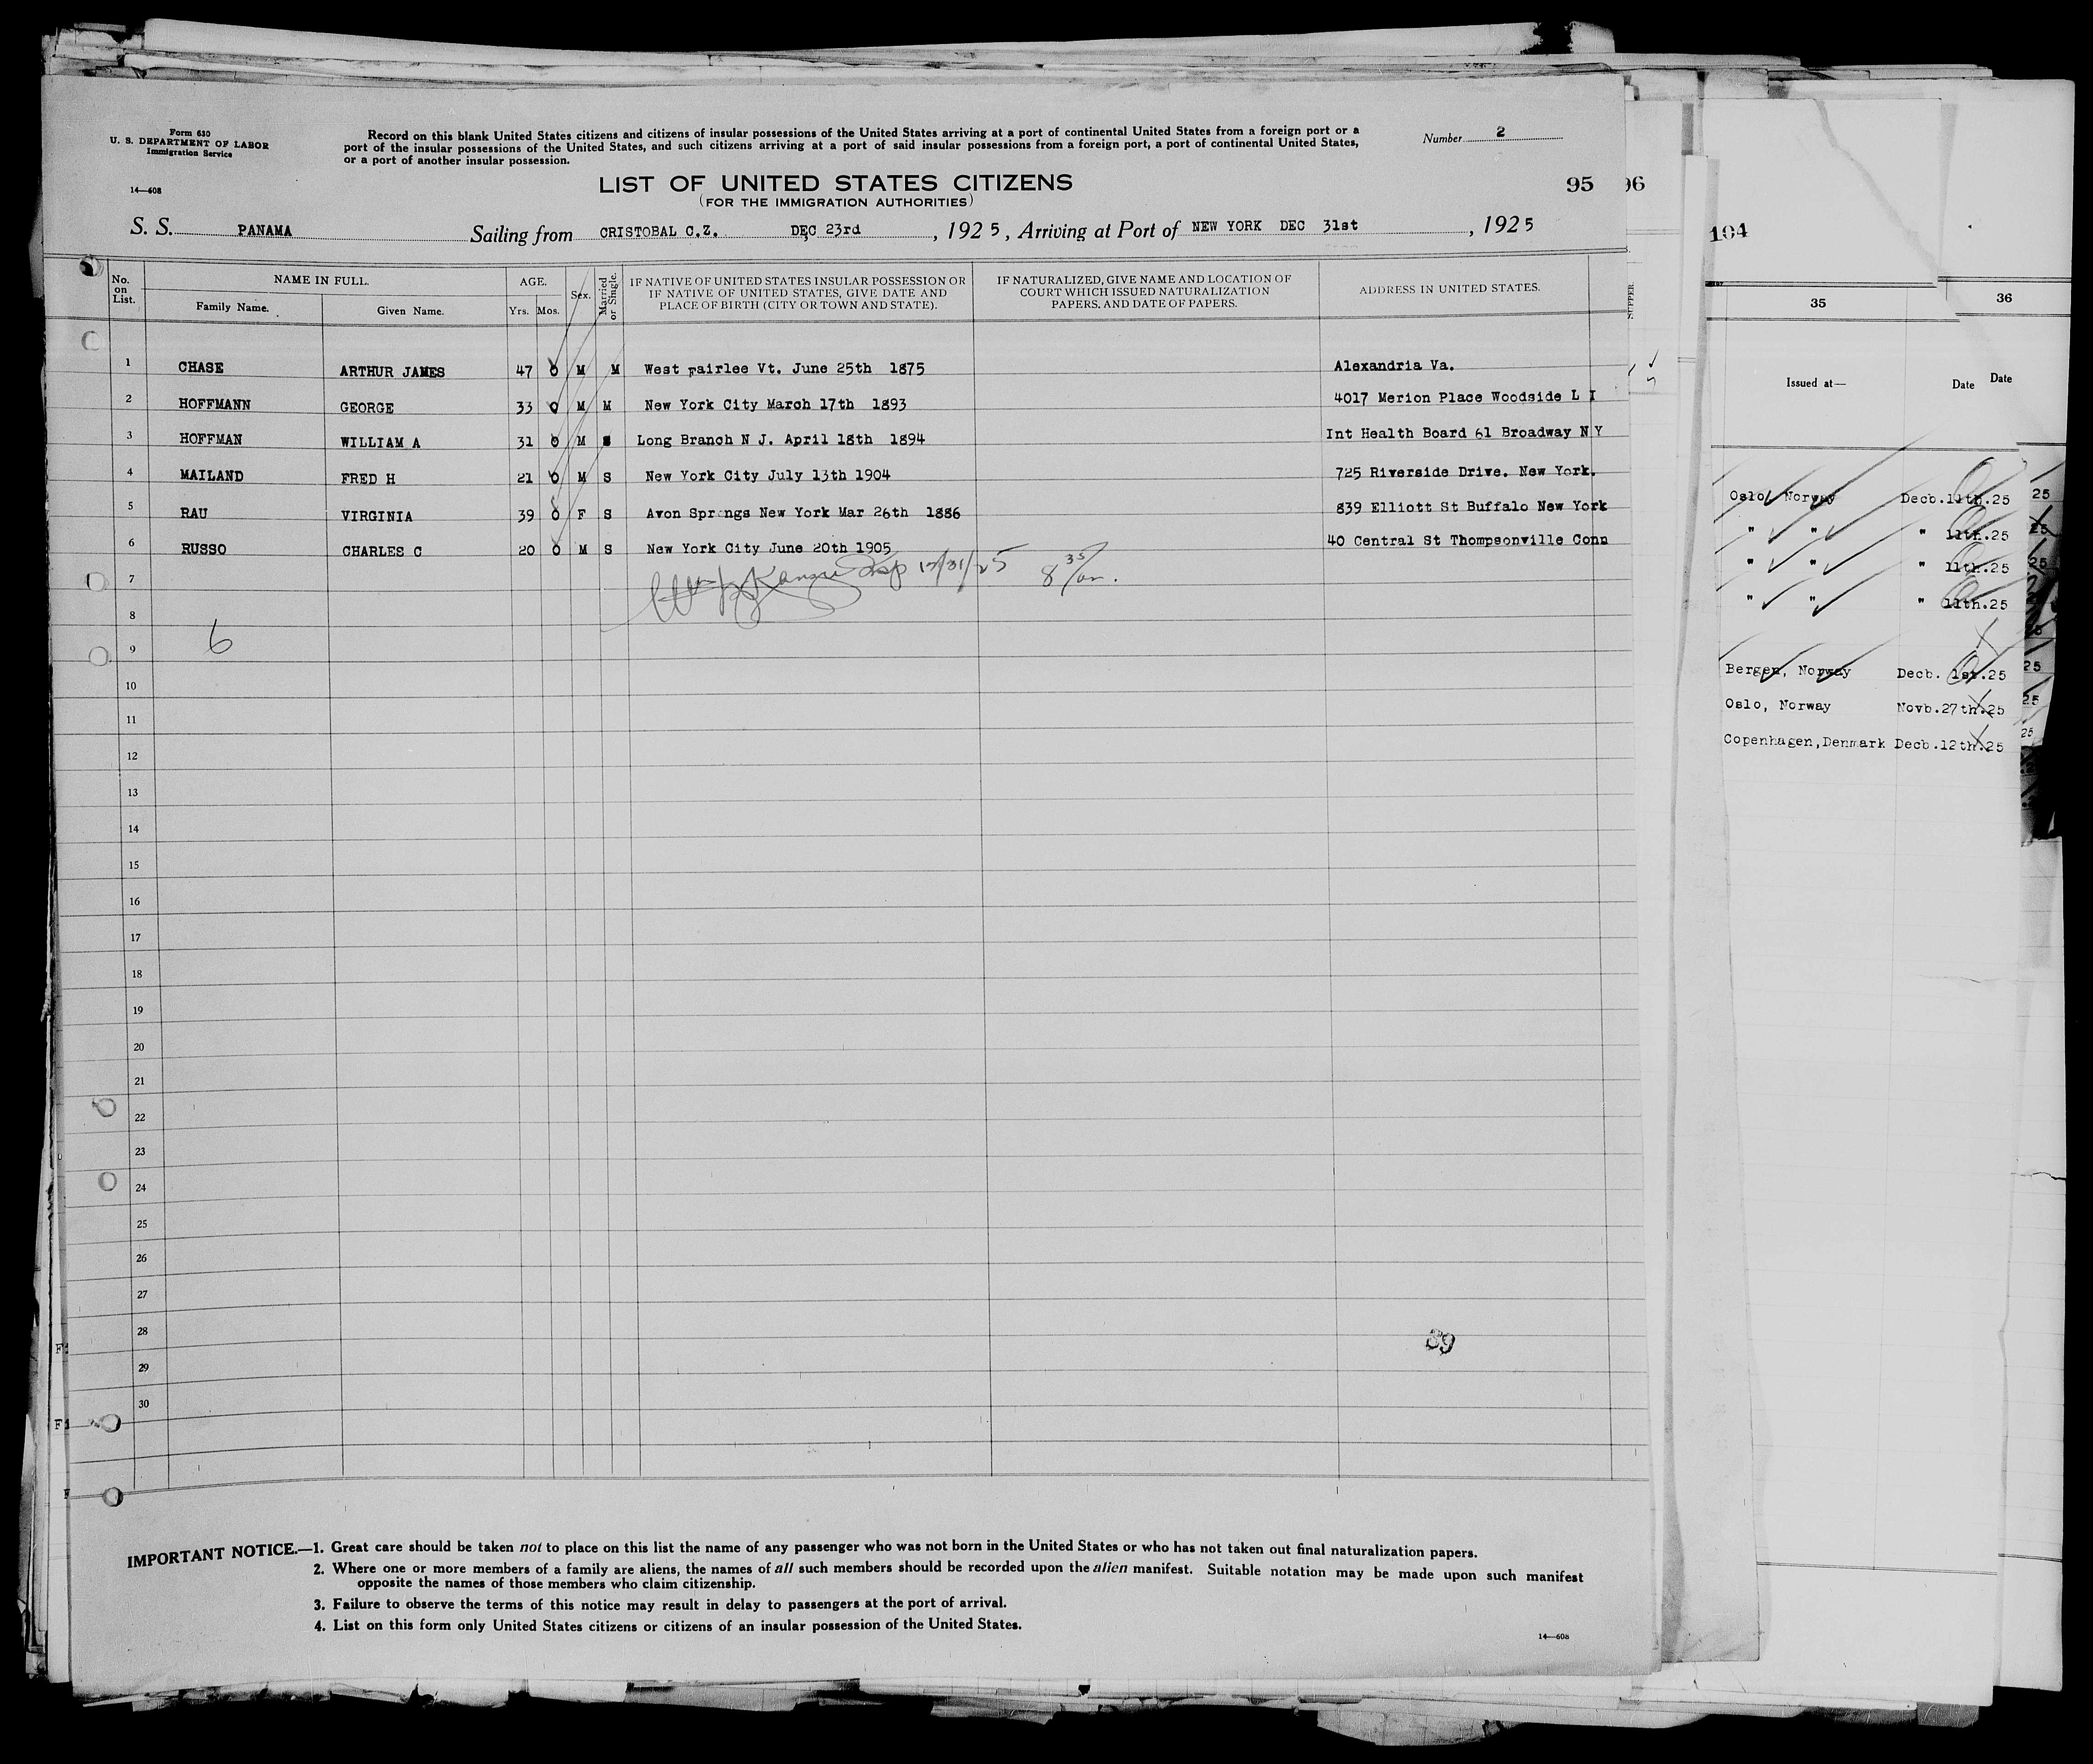 Form 630
U. S. DEPARTMENT OF LABOR
Immigration Service
14—608
Record on this blank United States citizens and citizens of insular possessions of the United States arriving at a port of continental United States from a foreign port or a
port of the insular possessions of the United States, and such citizens arriving at a port of said insular possessions from a foreign port, a port of continental United States,
or a port of another insular possession.
Number 2
LIST OF UNITED STATES CITIZENS
(FOR THE IMMIGRATION AUTHORITIES)
95
S. S. PANAMA Sailing from CRISTOBAL C.Z. DEC 23rd, 1925, Arriving at Port of NEW YORK DEC 31st, 1925
No. on List. NAME IN FULL. AGE. Sex. Married or Single. IF NATIVE OF UNITED STATES INSULAR POSSESSION OR IF NATIVE OF UNITED STATES, GIVE DATE AND PLACE OF BIRTH (CITY OR TOWN AND STATE). IF NATURALIZED, GIVE NAME AND LOCATION OF COURT WHICH ISSUED NATURALIZATION PAPERS, AND DATE OF PAPERS. ADDRESS IN UNITED STATES.
Family Name. Given Name. Yrs. Mos.
1 CHASE ARTHUR JAMES 47 0 M M West Fairlee Vt. June 25th 1875 Alexandria Va.
2 HOFFMANN GEORGE 33 0 M M New York City March 17th 1893 4017 Merion Place Woodside L I
3 HOFFMAN WILLIAM A 31 0 M S Long Branch N J. April 18th 1894 Int Health Board 61 Broadway N Y
4 MAILAND FRED H 21 0 M S New York City July 13th 1904 725 Riverside Drive. New York.
5 RAU VIRGINIA 39 0 F S Avon Sprngs New York Mar 26th 1886 839 Elliott St Buffalo New York
6 RUSSO CHARLES C 20 0 M S New York City June 20th 1905 40 Central St Thompsonville Conn
7 Insp 12/31/25 8 35/am.
8
9 6
10
11
12
13
14
15
16
17
18
19
20
21
22
23
24
25
26
27
28 39
29
30
IMPORTANT NOTICE.—1. Great care should be taken not to place on this list the name of any passenger who was not born in the United States or who has not taken out final naturalization papers.
2. Where one or more members of a family are aliens, the names of all such members should be recorded upon the alien manifest. Suitable notation may be made upon such manifest
opposite the names of those members who claim citizenship.
3. Failure to observe the terms of this notice may result in delay to passengers at the port of arrival.
4. List on this form only United States citizens or citizens of an insular possession of the United States.
14—608
96
104
35 36
Issued at— Date Date
Oslo, Norway Decb.11th.25 25
" " " 11th.25 25
" " " 11th.25 25
" " " 11th.25
Bergen, Norway Decb. 1st.25 25
Oslo, Norway Novb.27th.25 25
Copenhagen,Denmark Decb.12th.25 25